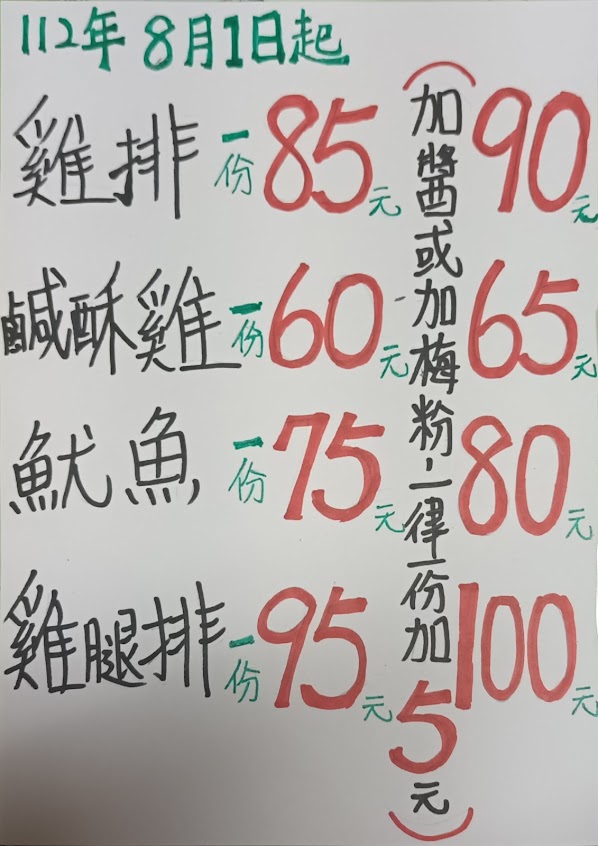 112年8月1日起
雞排 一份85元 90元
鹹酥雞 一份60元 65元
魷魚 一份75元 80元
雞腿排 一份95元 100元
(加醬或加梅粉一律一份加5元)